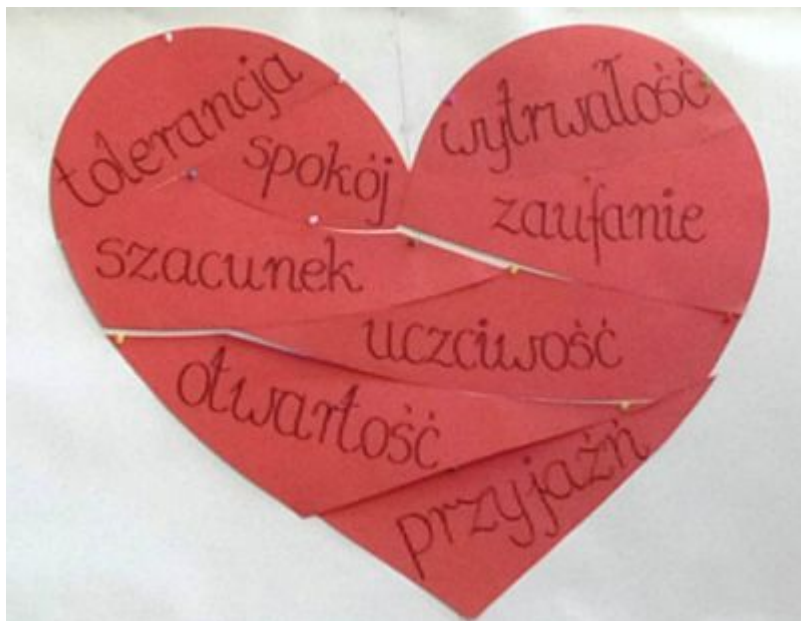 tolerancja
spokój
wytrwałość
zaufanie
szacunek
uczciwość
otwartość
przyjaźń